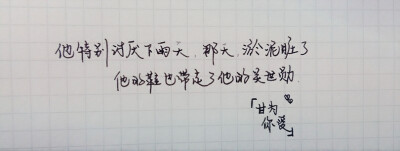 他特别讨厌下雨天 那天 淤泥脏了
他的鞋也带走了他的吴世勋
「甘为
你爱」